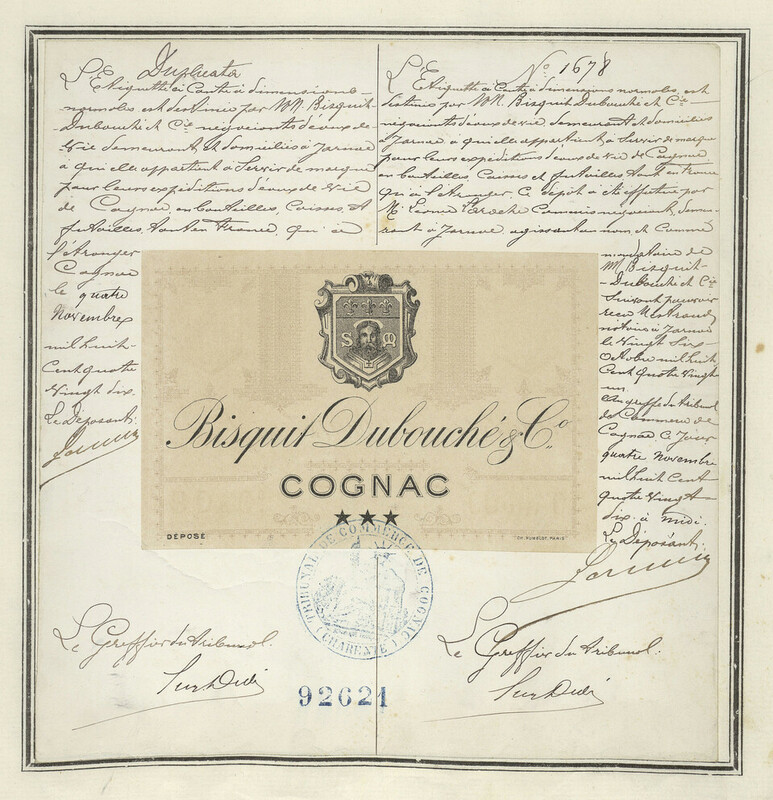 Duplicata
L'Etiquette ci Contre à dimensions
normales est destinée par MM. Bisquit-
Dubouché et Cie négociants d'eaux de
Vie demeurant et domiciliés à Jarnac
à qui elle appartient à Servir de marque
pour leurs expéditions d'eaux de vie
de Cognac, en bouteilles, Caisses, et
futailles, tant en France, qu'à
l'étranger
Cognac
le quatre
Novembre
mil huit-
Cent quatre
Vingt dix.
Le Déposant:
N° 1678
L'Etiquette ci Contre à dimensions normales, est
destinée par MM. Bisquit Dubouché et Cie
négociants d'eaux de vie demeurant et domiciliés
à Jarnac à qui elle appartient à Servir de marque
pour leurs expéditions d'eaux de vie de Cognac
en bouteilles, Caisses et futailles tant en France
qu'à l'étranger. Ce dépôt a été effectué par
M. Laroche Commis négociant, demeu-
rant à Jarnac agissant au nom et Comme
mandataire de
MM. Bisquit-
Dubouché et Cie
Suivant pouvoir
reçu
notaire à Jarnac
le Vingt Six
Octobre mil huit
Cent quatre Vingt
un.
Au greffe du tribunal
de Commerce de
Cognac Ce Jour
quatre Novembre
mil huit Cent
quatre Vingt
dix à midi.
Le Déposant:
S M
Bisquit Dubouché & Co.
COGNAC
DÉPOSÉ
TRIBUNAL DE COMMERCE DE COGNAC
(CHARENTE)
Le Greffier du tribunal.
Le Greffier du tribunal.
92621